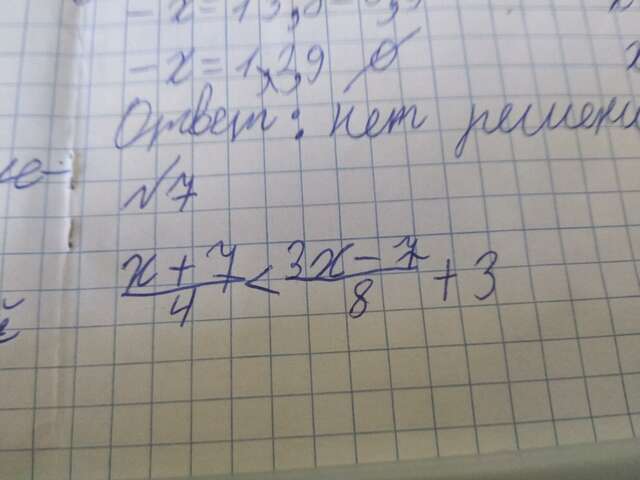 -x = 1,39 ∅
Ответ: нет решени
№7
x+7/4 < 3x-7/8 + 3